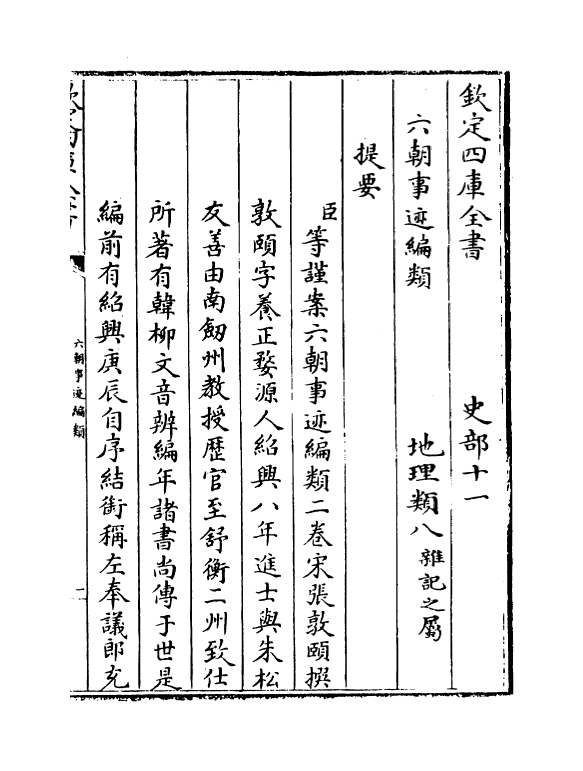 欽定四庫全書 史部十一
六朝事迹編類 地理類八 雜記之屬
提要
臣等謹案六朝事迹編類二卷宋張敦頤撰
敦頤字養正婺源人紹興八年進士與朱松
友善由南劒州教授歴官至舒衡二州致仕
所著有韓柳文音辨編年諸書尚傳于世是
編前有紹興庚辰自序結銜稱左奉議郎充
六朝事迹編類